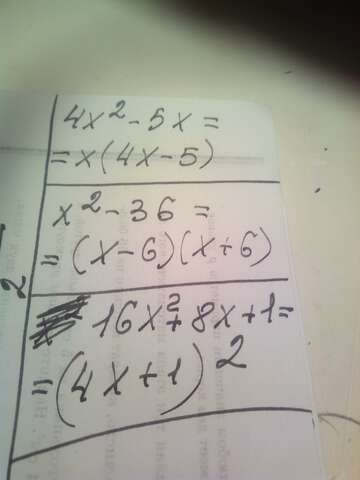 4x² - 5x =
= x(4x - 5)
x² - 36 =
= (x - 6)(x + 6)
16x² + 8x + 1 =
= (4x + 1)²
2